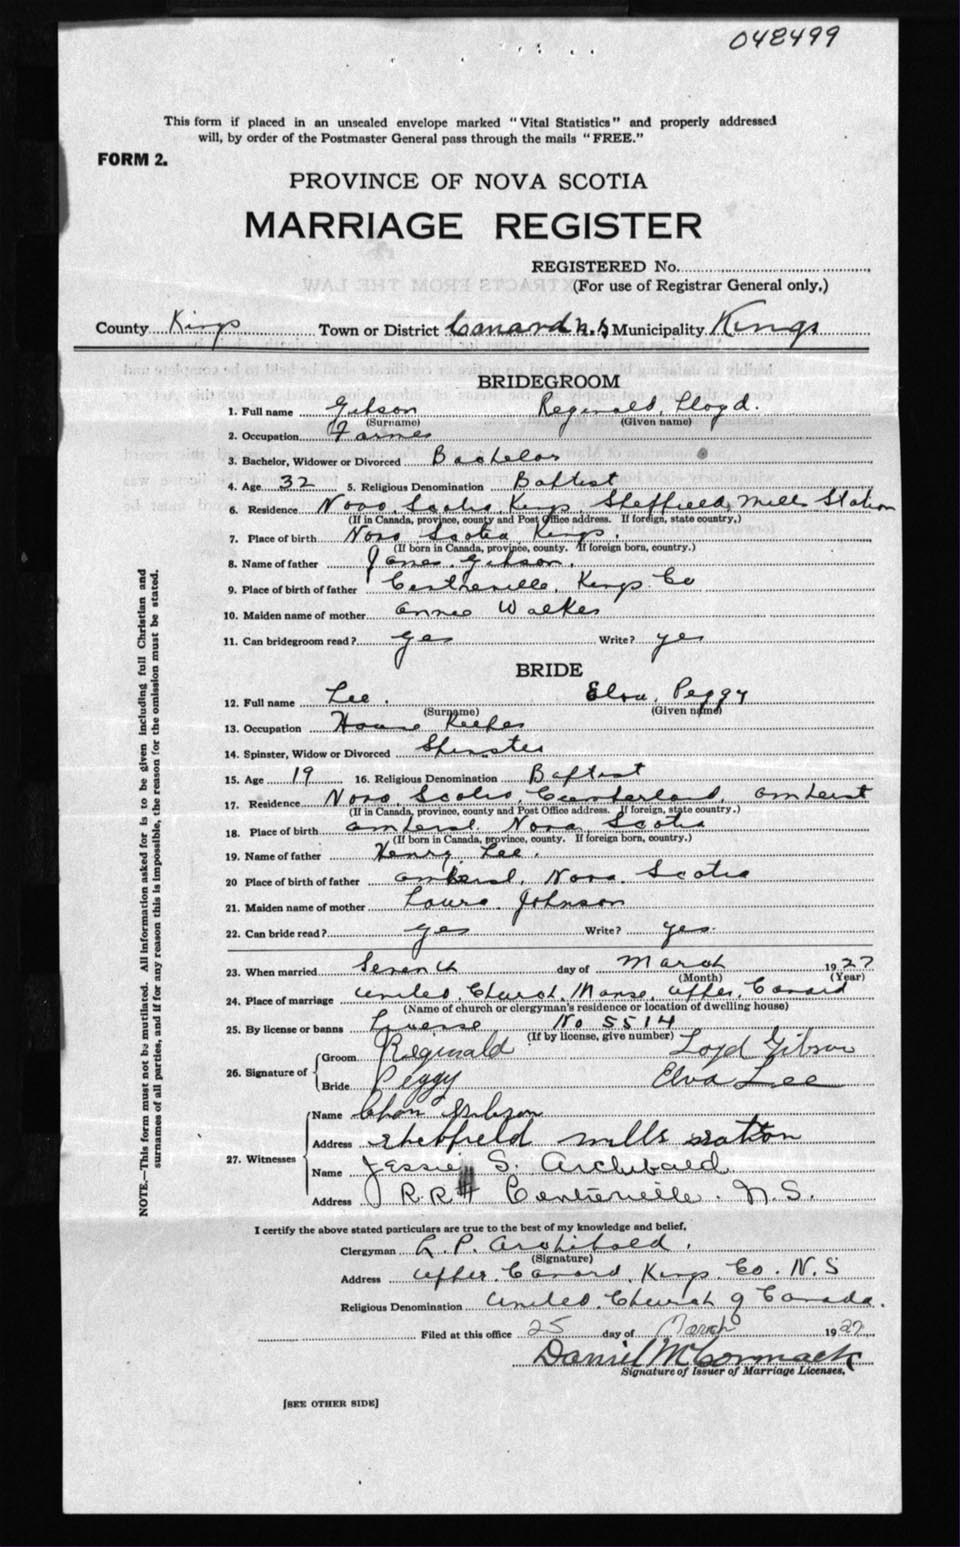 048499
This form if placed in an unsealed envelope marked "Vital Statistics" and properly addressed
will, by order of the Postmaster General pass through the mails "FREE."
FORM 2.
PROVINCE OF NOVA SCOTIA
MARRIAGE REGISTER
REGISTERED No.
(For use of Registrar General only.)
County Kings Town or District Canard N.S Municipality Kings
BRIDEGROOM
1. Full name Gibson Reginald Lloyd.
(Surname) (Given name)
2. Occupation Farmer
3. Bachelor, Widower or Divorced Bachelor
4. Age 32 5. Religious Denomination Baptist
6. Residence Nova Scotia, Kings, Sheffield Mills Station
(If in Canada, province, county and Post Office address. If foreign, state country.)
7. Place of birth Nova Scotia Kings.
(If born in Canada, province, county. If foreign born, country.)
8. Name of father James Gibson.
9. Place of birth of father Centreville, Kings Co
10. Maiden name of mother Annie Walker
11. Can bridegroom read? yes Write? yes
BRIDE
12. Full name Lee. Elva, Peggy
(Surname) (Given name)
13. Occupation House Keeper
14. Spinster, Widow or Divorced Spinster
15. Age 19 16. Religious Denomination Baptist
17. Residence Nova Scotia, Cumberland, Amherst
(If in Canada, province, county and Post Office address. If foreign, state country.)
18. Place of birth Amherst, Nova Scotia
(If born in Canada, province, county. If foreign born, country.)
19. Name of father Henry Lee.
20 Place of birth of father Amherst, Nova Scotia
21. Maiden name of mother Laura Johnson
22. Can bride read? yes Write? yes.
23. When married Seventh day of March 1927
(Month) (Year)
24. Place of marriage United Church Manse, Upper Canard
(Name of church or clergyman's residence or location of dwelling house)
25. By license or banns License No 5514
(If by license, give number)
26. Signature of
Groom Reginald Loyd Gibson
Bride Peggy Elva Lee
27. Witnesses
Name Chas Gibson
Address Sheffield mills station
Name Jessie S. Archibald
Address R.R # Centreville. N.S.
I certify the above stated particulars are true to the best of my knowledge and belief,
Clergyman L. P. Archibald.
(Signature)
Address Upper Canard, Kings Co. N.S
Religious Denomination United Church of Canada.
Filed at this office 25 day of March 1927
Daniel McCormack
Signature of Issuer of Marriage Licenses.
[SEE OTHER SIDE]
NOTE.—This form must not be mutilated. All information asked for is to be given including full Christian and
surnames of all parties, and if for any reason this is impossible, the reason for the omission must be stated.